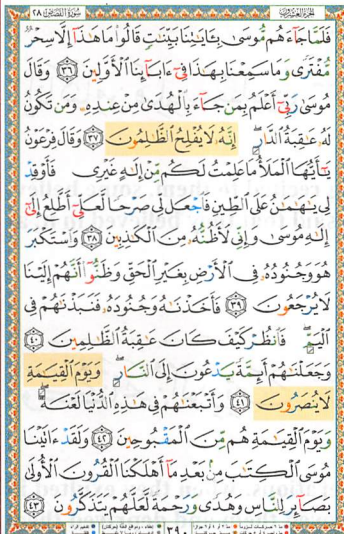 الجزء العشرون سورة القصص ٢٨
فَلَمَّا جَآءَهُم مُّوسَىٰ بِـَٔايَٰتِنَا بَيِّنَٰتٍ قَالُوا۟ مَا هَٰذَآ إِلَّا سِحْرٌ
مُّفْتَرًى وَمَا سَمِعْنَا بِهَٰذَا فِىٓ ءَابَآئِنَا ٱلْأَوَّلِينَ ٣٦ وَقَالَ
مُوسَىٰ رَبِّىٓ أَعْلَمُ بِمَن جَآءَ بِٱلْهُدَىٰ مِنْ عِندِهِۦ وَمَن تَكُونُ
لَهُۥ عَٰقِبَةُ ٱلدَّارِ إِنَّهُۥ لَا يُفْلِحُ ٱلظَّٰلِمُونَ ٣٧ وَقَالَ فِرْعَوْنُ
يَٰٓأَيُّهَا ٱلْمَلَأُ مَا عَلِمْتُ لَكُم مِّنْ إِلَٰهٍ غَيْرِى فَأَوْقِدْ
لِى يَٰهَٰمَٰنُ عَلَى ٱلطِّينِ فَٱجْعَل لِّى صَرْحًا لَّعَلِّىٓ أَطَّلِعُ إِلَىٰٓ
إِلَٰهِ مُوسَىٰ وَإِنِّى لَأَظُنُّهُۥ مِنَ ٱلْكَٰذِبِينَ ٣٨ وَٱسْتَكْبَرَ
هُوَ وَجُنُودُهُۥ فِى ٱلْأَرْضِ بِغَيْرِ ٱلْحَقِّ وَظَنُّوٓا۟ أَنَّهُمْ إِلَيْنَا
لَا يُرْجَعُونَ ٣٩ فَأَخَذْنَٰهُ وَجُنُودَهُۥ فَنَبَذْنَٰهُمْ فِى
ٱلْيَمِّ فَٱنظُرْ كَيْفَ كَانَ عَٰقِبَةُ ٱلظَّٰلِمِينَ ٤٠
وَجَعَلْنَٰهُمْ أَئِمَّةً يَدْعُونَ إِلَى ٱلنَّارِ وَيَوْمَ ٱلْقِيَٰمَةِ
لَا يُنصَرُونَ ٤١ وَأَتْبَعْنَٰهُمْ فِى هَٰذِهِ ٱلدُّنْيَا لَعْنَةً
وَيَوْمَ ٱلْقِيَٰمَةِ هُم مِّنَ ٱلْمَقْبُوحِينَ ٤٢ وَلَقَدْ ءَاتَيْنَا
مُوسَى ٱلْكِتَٰبَ مِنۢ بَعْدِ مَآ أَهْلَكْنَا ٱلْقُرُونَ ٱلْأُولَىٰ
بَصَآئِرَ لِلنَّاسِ وَهُدًى وَرَحْمَةً لَّعَلَّهُمْ يَتَذَكَّرُونَ ٤٣
٣٩٠